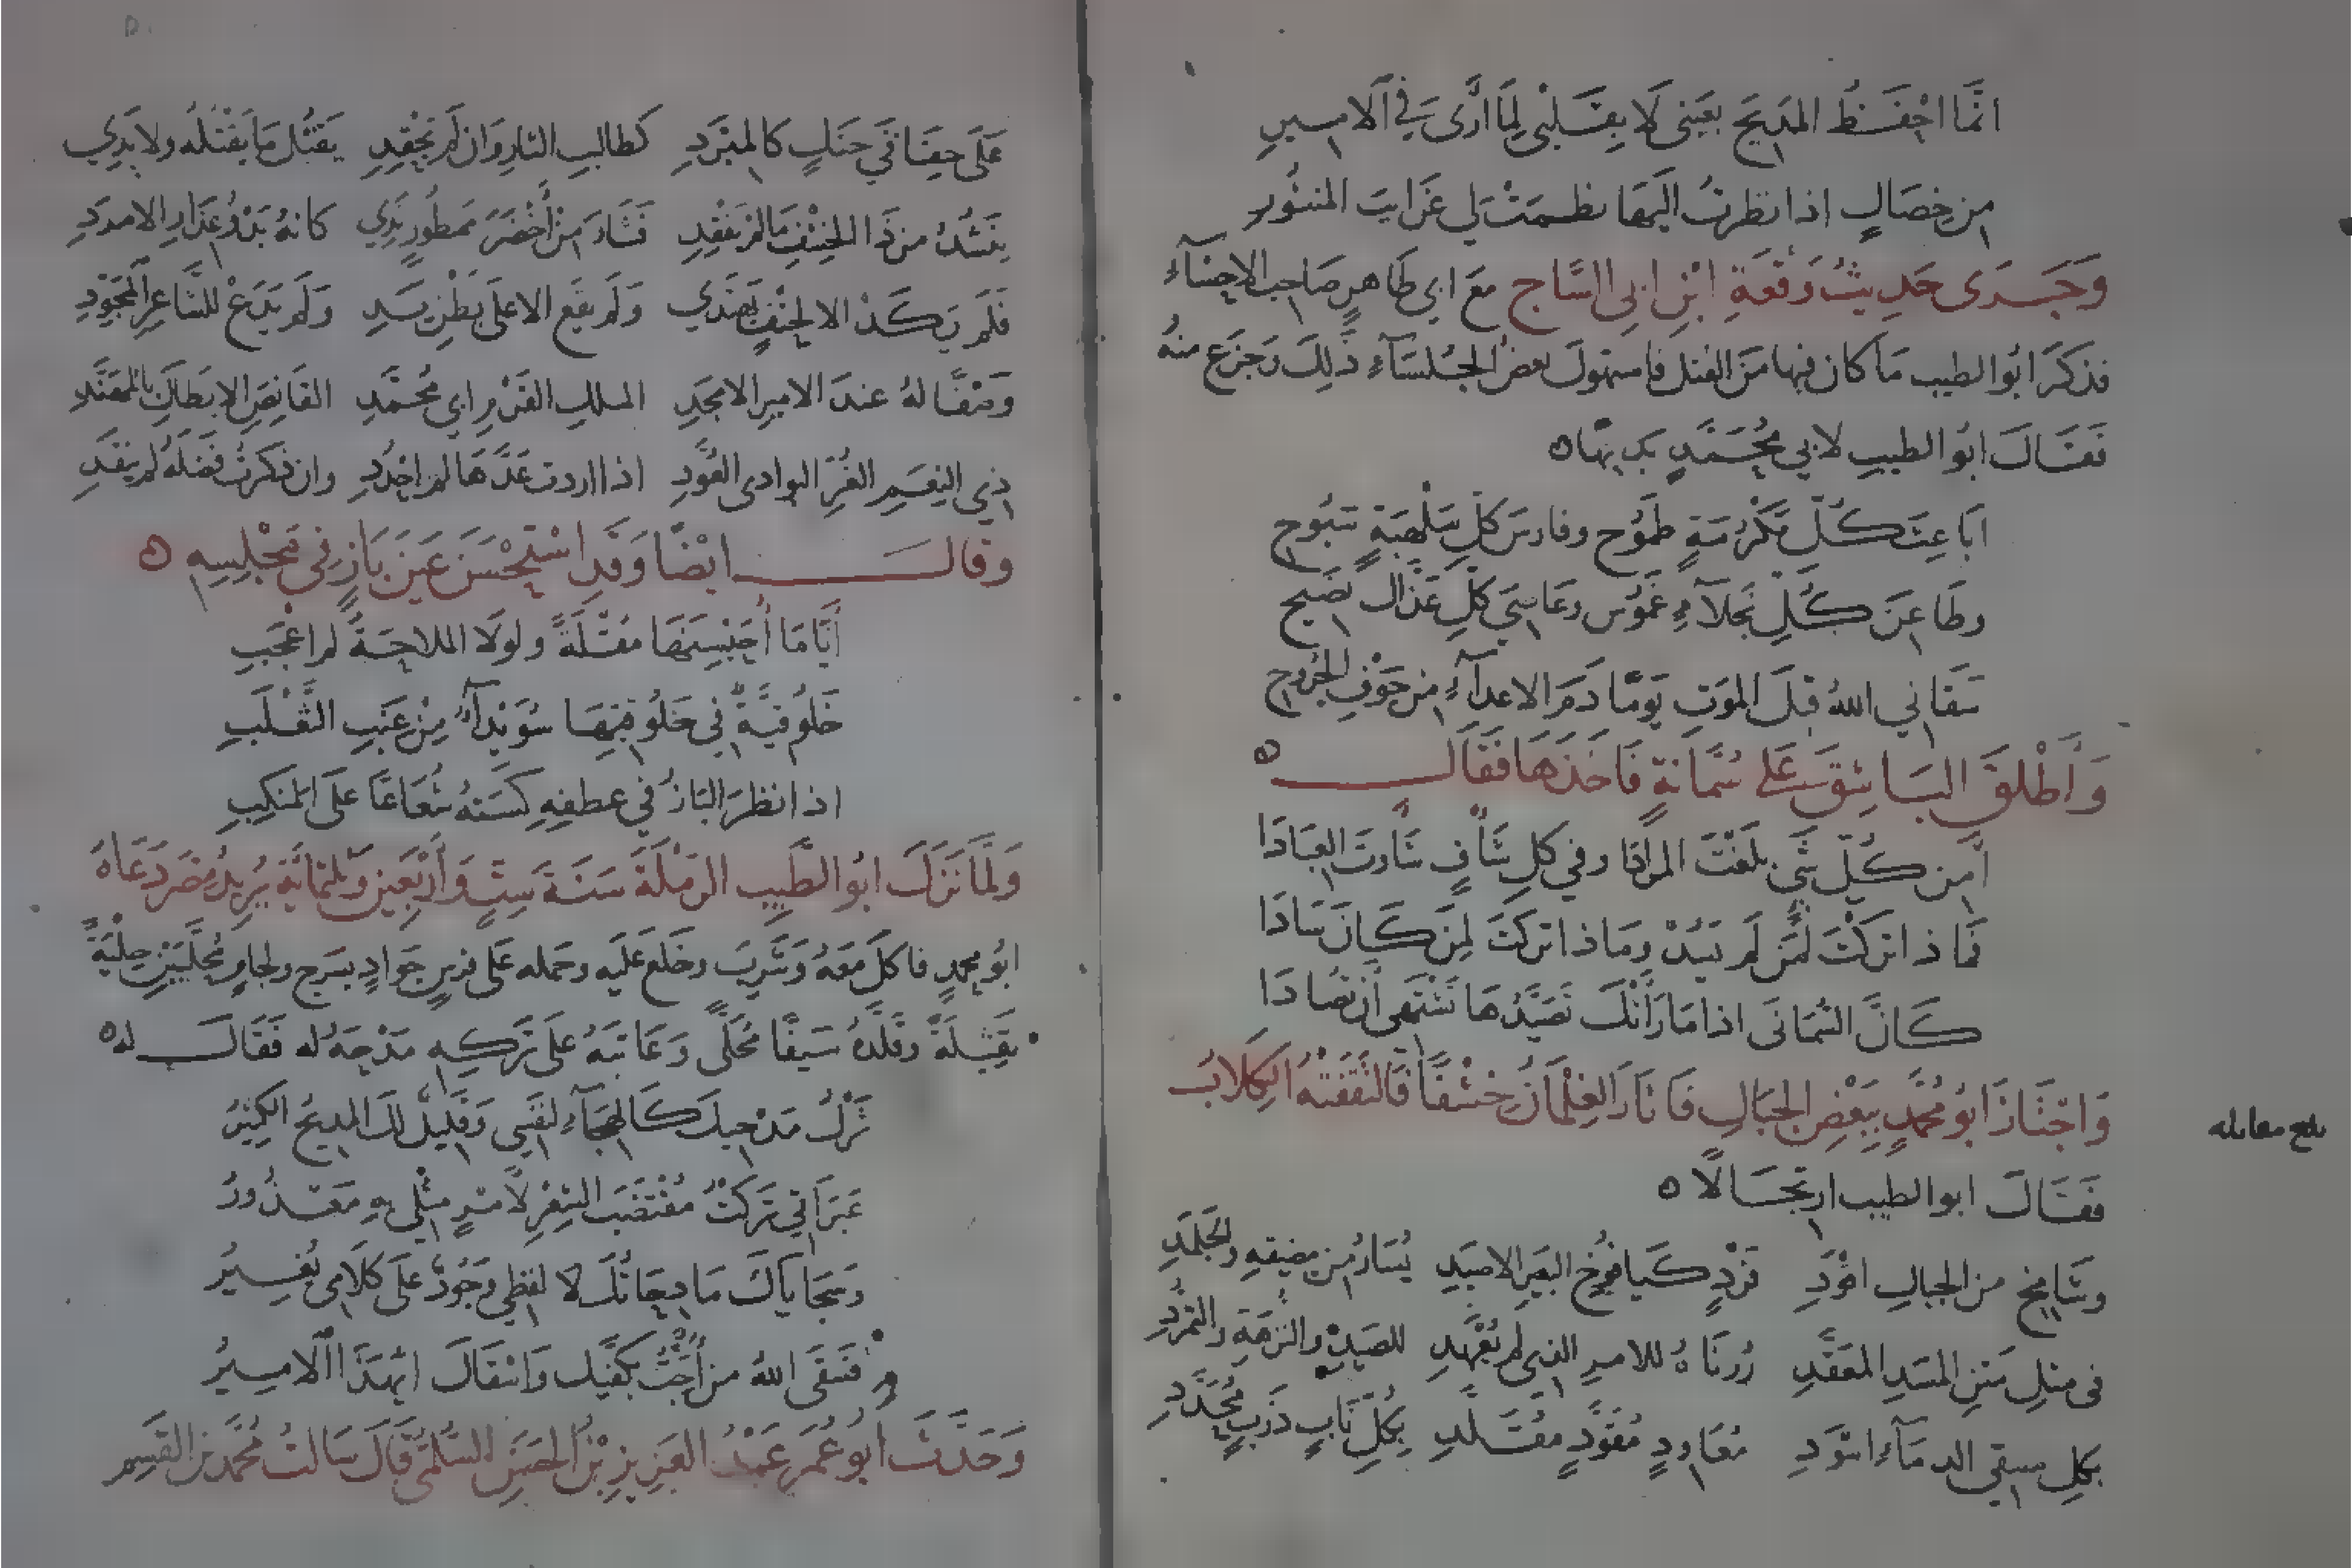 انما احفظ المديح بعينى لا بقلبى لما ارى في الامير
من خصال اذا نظرت اليها نظمت لى غرايب المنثور
وجرى حديث وقعة ابن ابى الساج مع ابى طاهر صاحب الاحساء
فذكر ابو الطيب ما كان فيها من القتل فاستهول بعض الجلساء ذلك وجزع منه
فقال ابو الطيب لابي محمد بديها ه
اباعث كل مكرمة طموح وفارس كل سلهبة سبوح
وطاعن كل نجلاء غموس وعاصي كل عذال نصيح
سقاني الله قبل الموت يوما دم الاعداء من جوف الجروح
واطلق الباشق على سماناة فاخذها فقال ه
امن كل شي بلغت المرادا وفي كل شاو شاوت العبادا
فماذا تركت لمن لم يسد وماذا تركت لمن كان سادا
كان السمانى اذا ما راتك تصيدها تشتهى ان تصادا
واجتاز ابو محمد ببعض الجبال فاثار الغلمان خشفا فالتقفته الكلاب
بلغ مقابله
فقال ابو الطيب ارتجالا ه
وشامخ من الجبال اقود فرد كيافوخ البعير الاصيد يسار من مضيقه والجلمد
فى مثل متن المسد المعقد زرناه للامر الذى لم يعهد للصيد والنزهة والتمرد
بكل مسقي الدماء اسود معاود مقود مقلد بكل ناب ذرب محدد
على حفافي حنك كالمبرد كطالب الثار وان لم يحقد يقتل ما يقتله ولا يدي
ينشد من ذا الخشف ما لم يفقد فثار من اخضر ممطور ندي كانه بدو عذار الامرد
فلم يكد الا لحتف يهتدي ولم يقع الا على بطن يد ولم يدع للشاعر المجود
وصفا له عند الامير الامجد الملك القرم ابي محمد القانص الابطال بالمهند
ذي النعم الغر البوادى العود اذا اردت عدها لم احدد وان ذكرت فضله لم ينفد
وقال ايضا وقد استحسن عين باز فى مجلسه ه
ايا ما احيسنها مقلة ولولا الملاحة لم اعجب
خلوقية في خلوقيها سويداء من عنب الثعلب
اذا نظر الباز في عطفه كسته شعاعا على المنكب
ولما نزل ابو الطيب الرملة سنة ست واربعين وثلثمائة يريد مصر دعاه
ابو محمد فاكل معه وشرب وخلع عليه وحمله على فرس جواد بسرج ولجام محليين حلية
ثقيلة وقلده سيفا محلى وعاتبه على تركه مدحه له فقال له ه
ترك مدحيك كالهجاء لنفسي وقليل لك المديح الكثير
غير اني تركت مقتضب الشعر لامر مثلي به معذور
وسجاياك مادحاتك لا لفظي وجود على كلامى يغير
فسقى الله من احب بكفيك واسقاك ايهذا الامير
وحدث ابو عمر عبد العزيز بن الحسن السلمي قال سالت محمد بن القسم